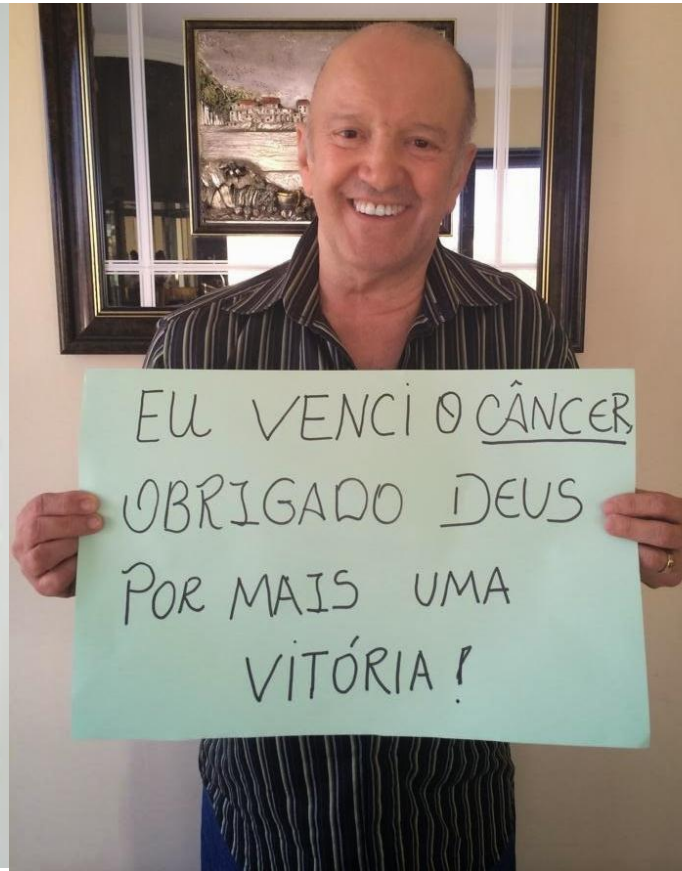 EU VENCI O CÂNCER
OBRIGADO DEUS
POR MAIS UMA
VITÓRIA!